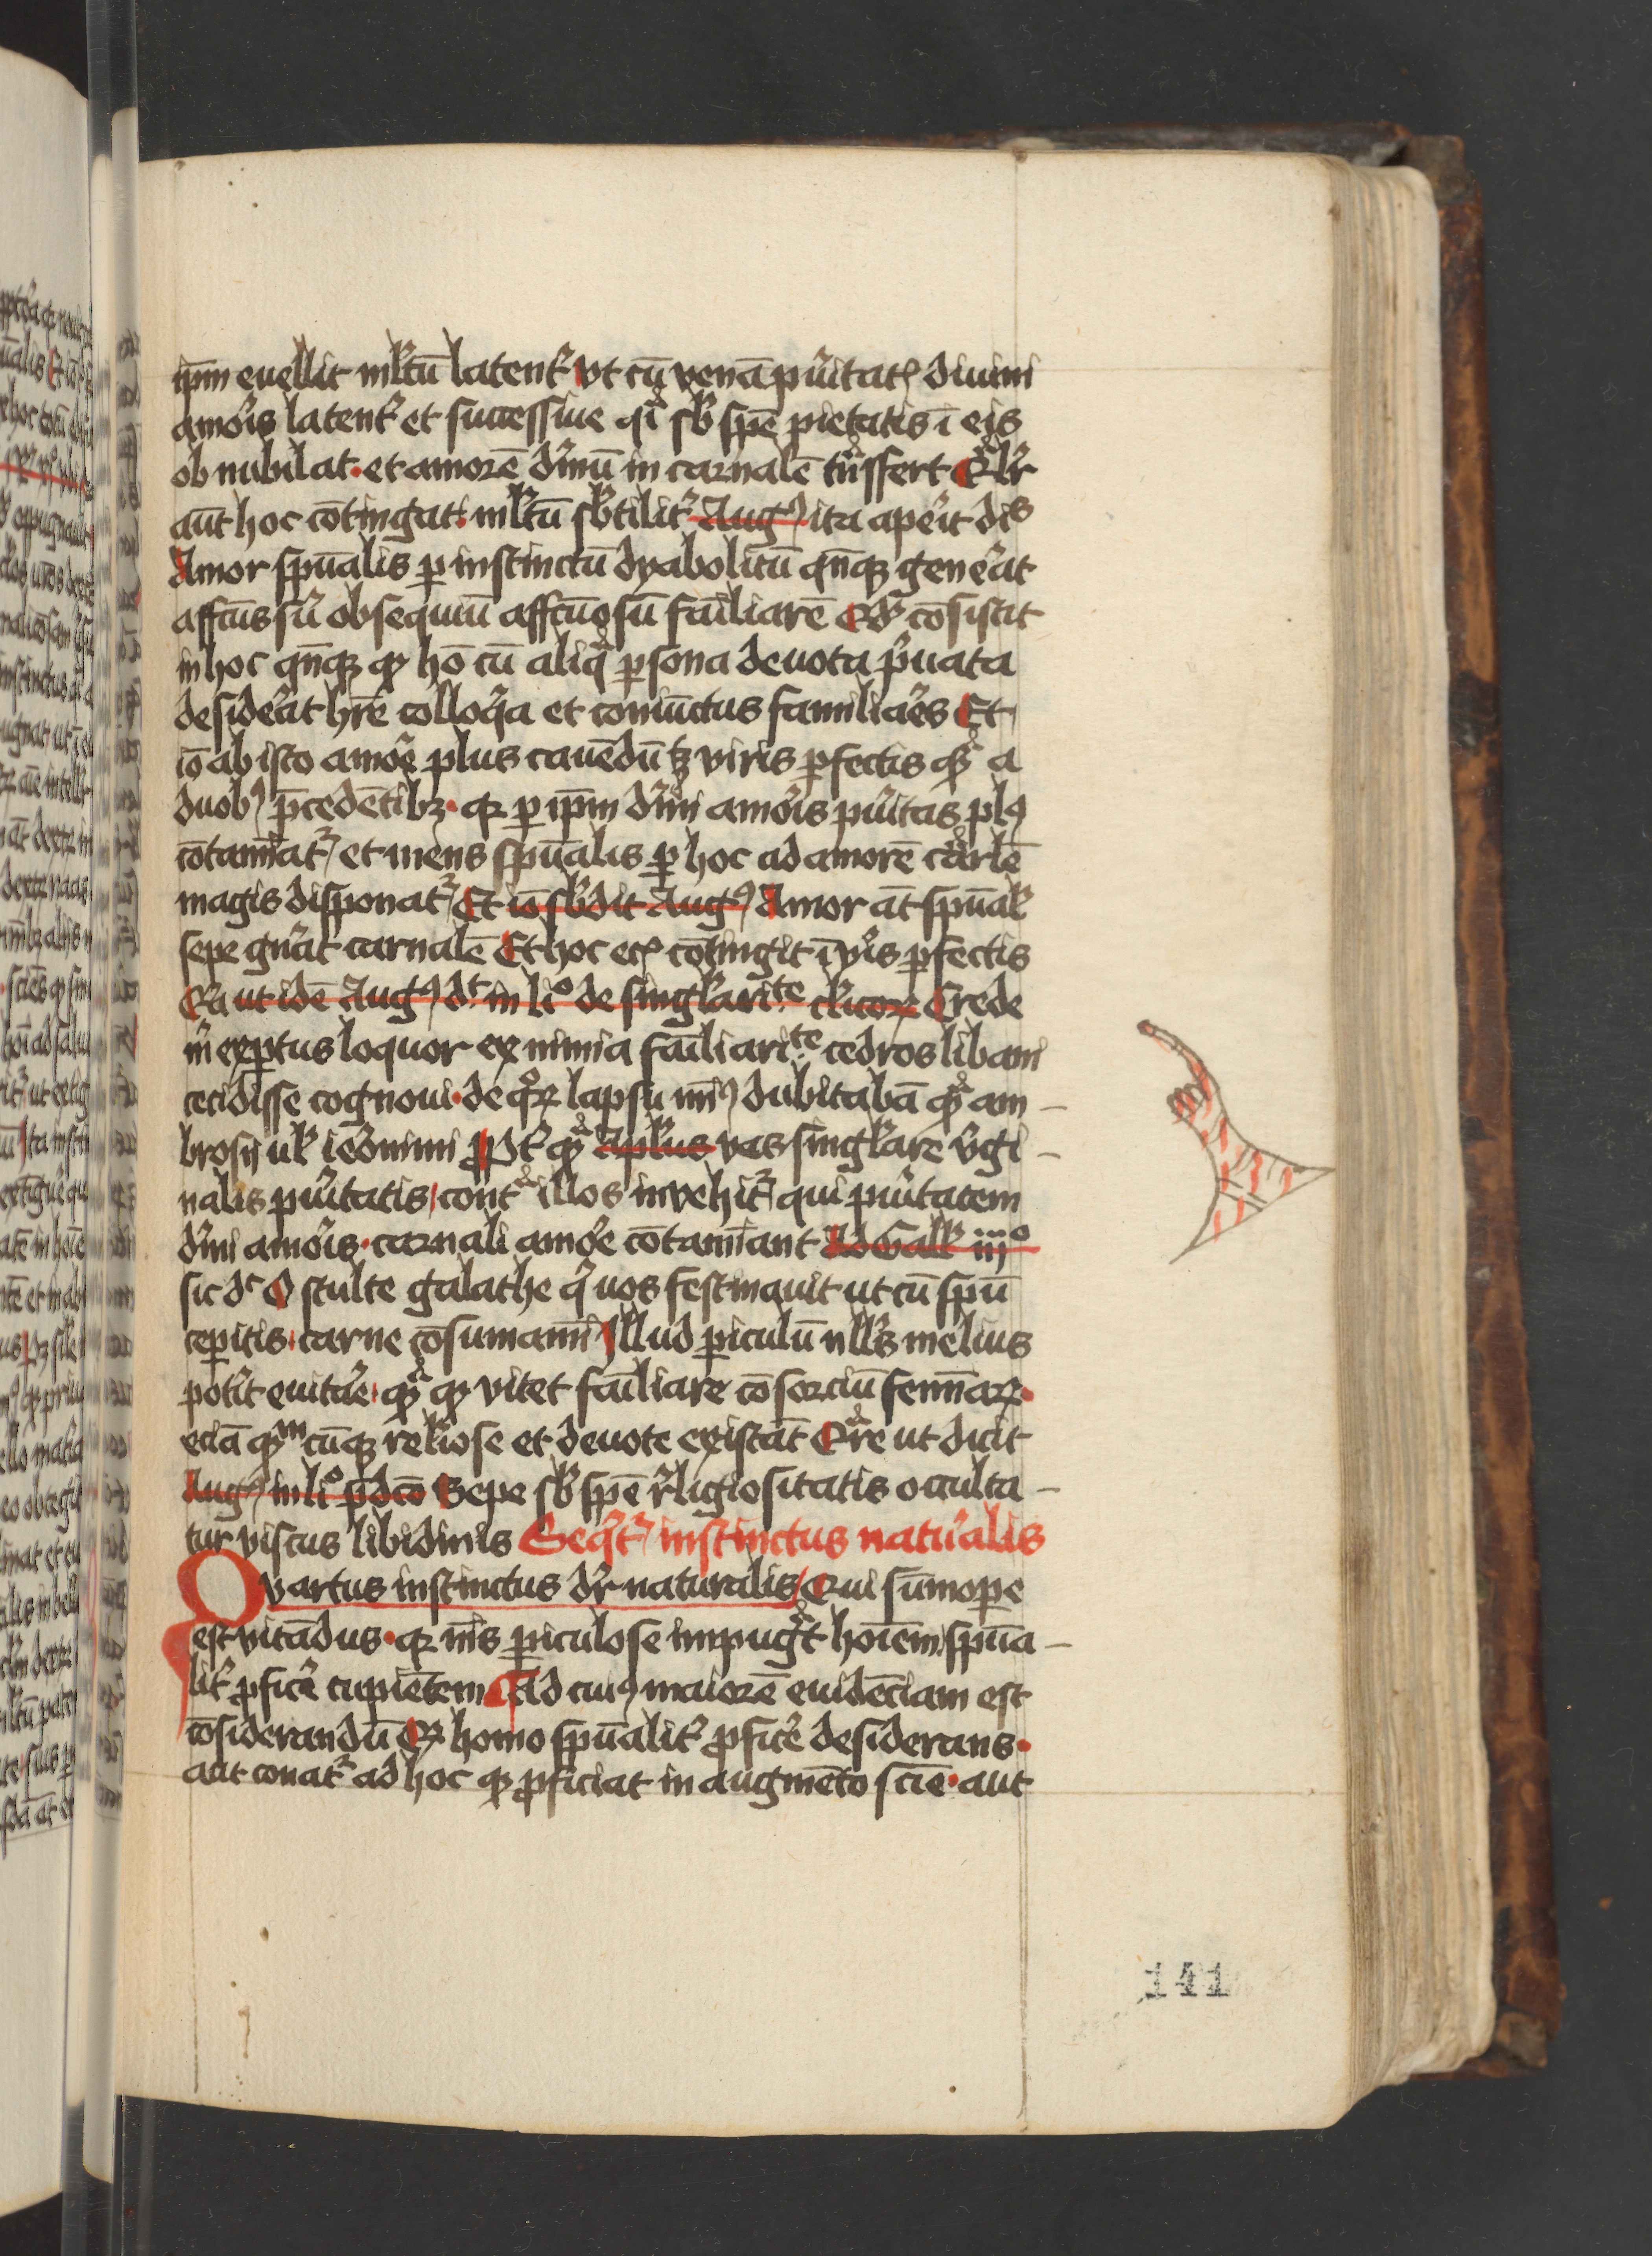 ip̄m euellit ml̄tū latent᷑ vt cū venā pu᷑itatꝭ diuini
amo᷑is latent᷑ et successiue qͥ sb̄ spē pietatis ī eis
ob nubilat · et amorē diuinū in carnalē tͣnsfert Qualr̄
aūt hoc cōtingat · ml̄tū sb̄tilit᷑ Augꝰ ita ape᷑it dis
Amor spūalis ꝑ instinctū dyabolicū qn̄qꝫ gene᷑at
affctūs su᷑ obsequiū affctūosū fa᷑iliarē Et cōsistit
in hoc qn̄qꝫ ꝙ hō cū aliqͣ ꝑsona deuota pͥuata
deside᷑at hr̄e colloqͥa et coniūctus familia᷑es Et
iō ab isto amo᷑e plus cauēdū ꝫ viris ꝑfectis ꝙͣ a
duobꝰ p̄cedētibꝫ · qꝛ ꝑ ip̄m diuini amo᷑is pu᷑itas plꝰ
cōtamīat᷑ et mens spūalis ꝑ hoc ad amorē cͣrlē
magis disponat᷑ Et iō sb̄dit Augꝰ Amor āt spūal̄
sepe gn᷑at carnalē Et hoc ecꝭ cōtingit ī vi᷑is ꝑfectis
Qͣ ut idē Augꝰ dt̄ in liº de singl̄arite cl̄icoꝝ Crede
m̄ exꝑtus loquor ex nimia fa᷑iliarite cedros libani
cecidisse cognoui · de qͦꝝ lapsu mīꝰ dubitabā ꝙͣ am -
brosij ul̄ ieronimi ꝓpt᷑ qͣ Apl̄us vas singl̄are v᷑gi -
nalis pu᷑itatis / contͣ illos invehit᷑ qui pu᷑itatem
diuini amo᷑is · carnali amo᷑e cōtamīant Ad Gal̄ iijº
sic dt̄ O stulte galathe qͥ uos festinauit ut cū spū
cepitis · carne cōsumamī Illud ꝑiculū nll̄s melius
pot᷑it euita᷑e · ꝙͣ ꝙ vitet fa᷑iliare cōsorciū femīaꝝ ·
eciā ꝙͫcūqꝫ reli᷑ose et deuote existāt Qͣre ut dicit
Augꝰ in liº p̄dcō Sepe sb̄ spē r᷑ligiositatis occulta -
tur viscus libidinis Seqͥt᷑ instinctus natu᷑alis
Qvartus instinctus dr̄ naturalis Qui sūmoꝑe
est vitādus · qꝛ nīs ꝑiculose impugͣt hoīem spūa -
lit᷑ ꝓfice᷑ cupiētem Ad cuiꝰ maiorē euidēciam est
cōsiderandū Qꝛ homo spūalit᷑ ꝓfice᷑ desiderans ·
aut conat᷑ ad hoc ꝙ ꝓficiat in augmēto scīe · aut
141